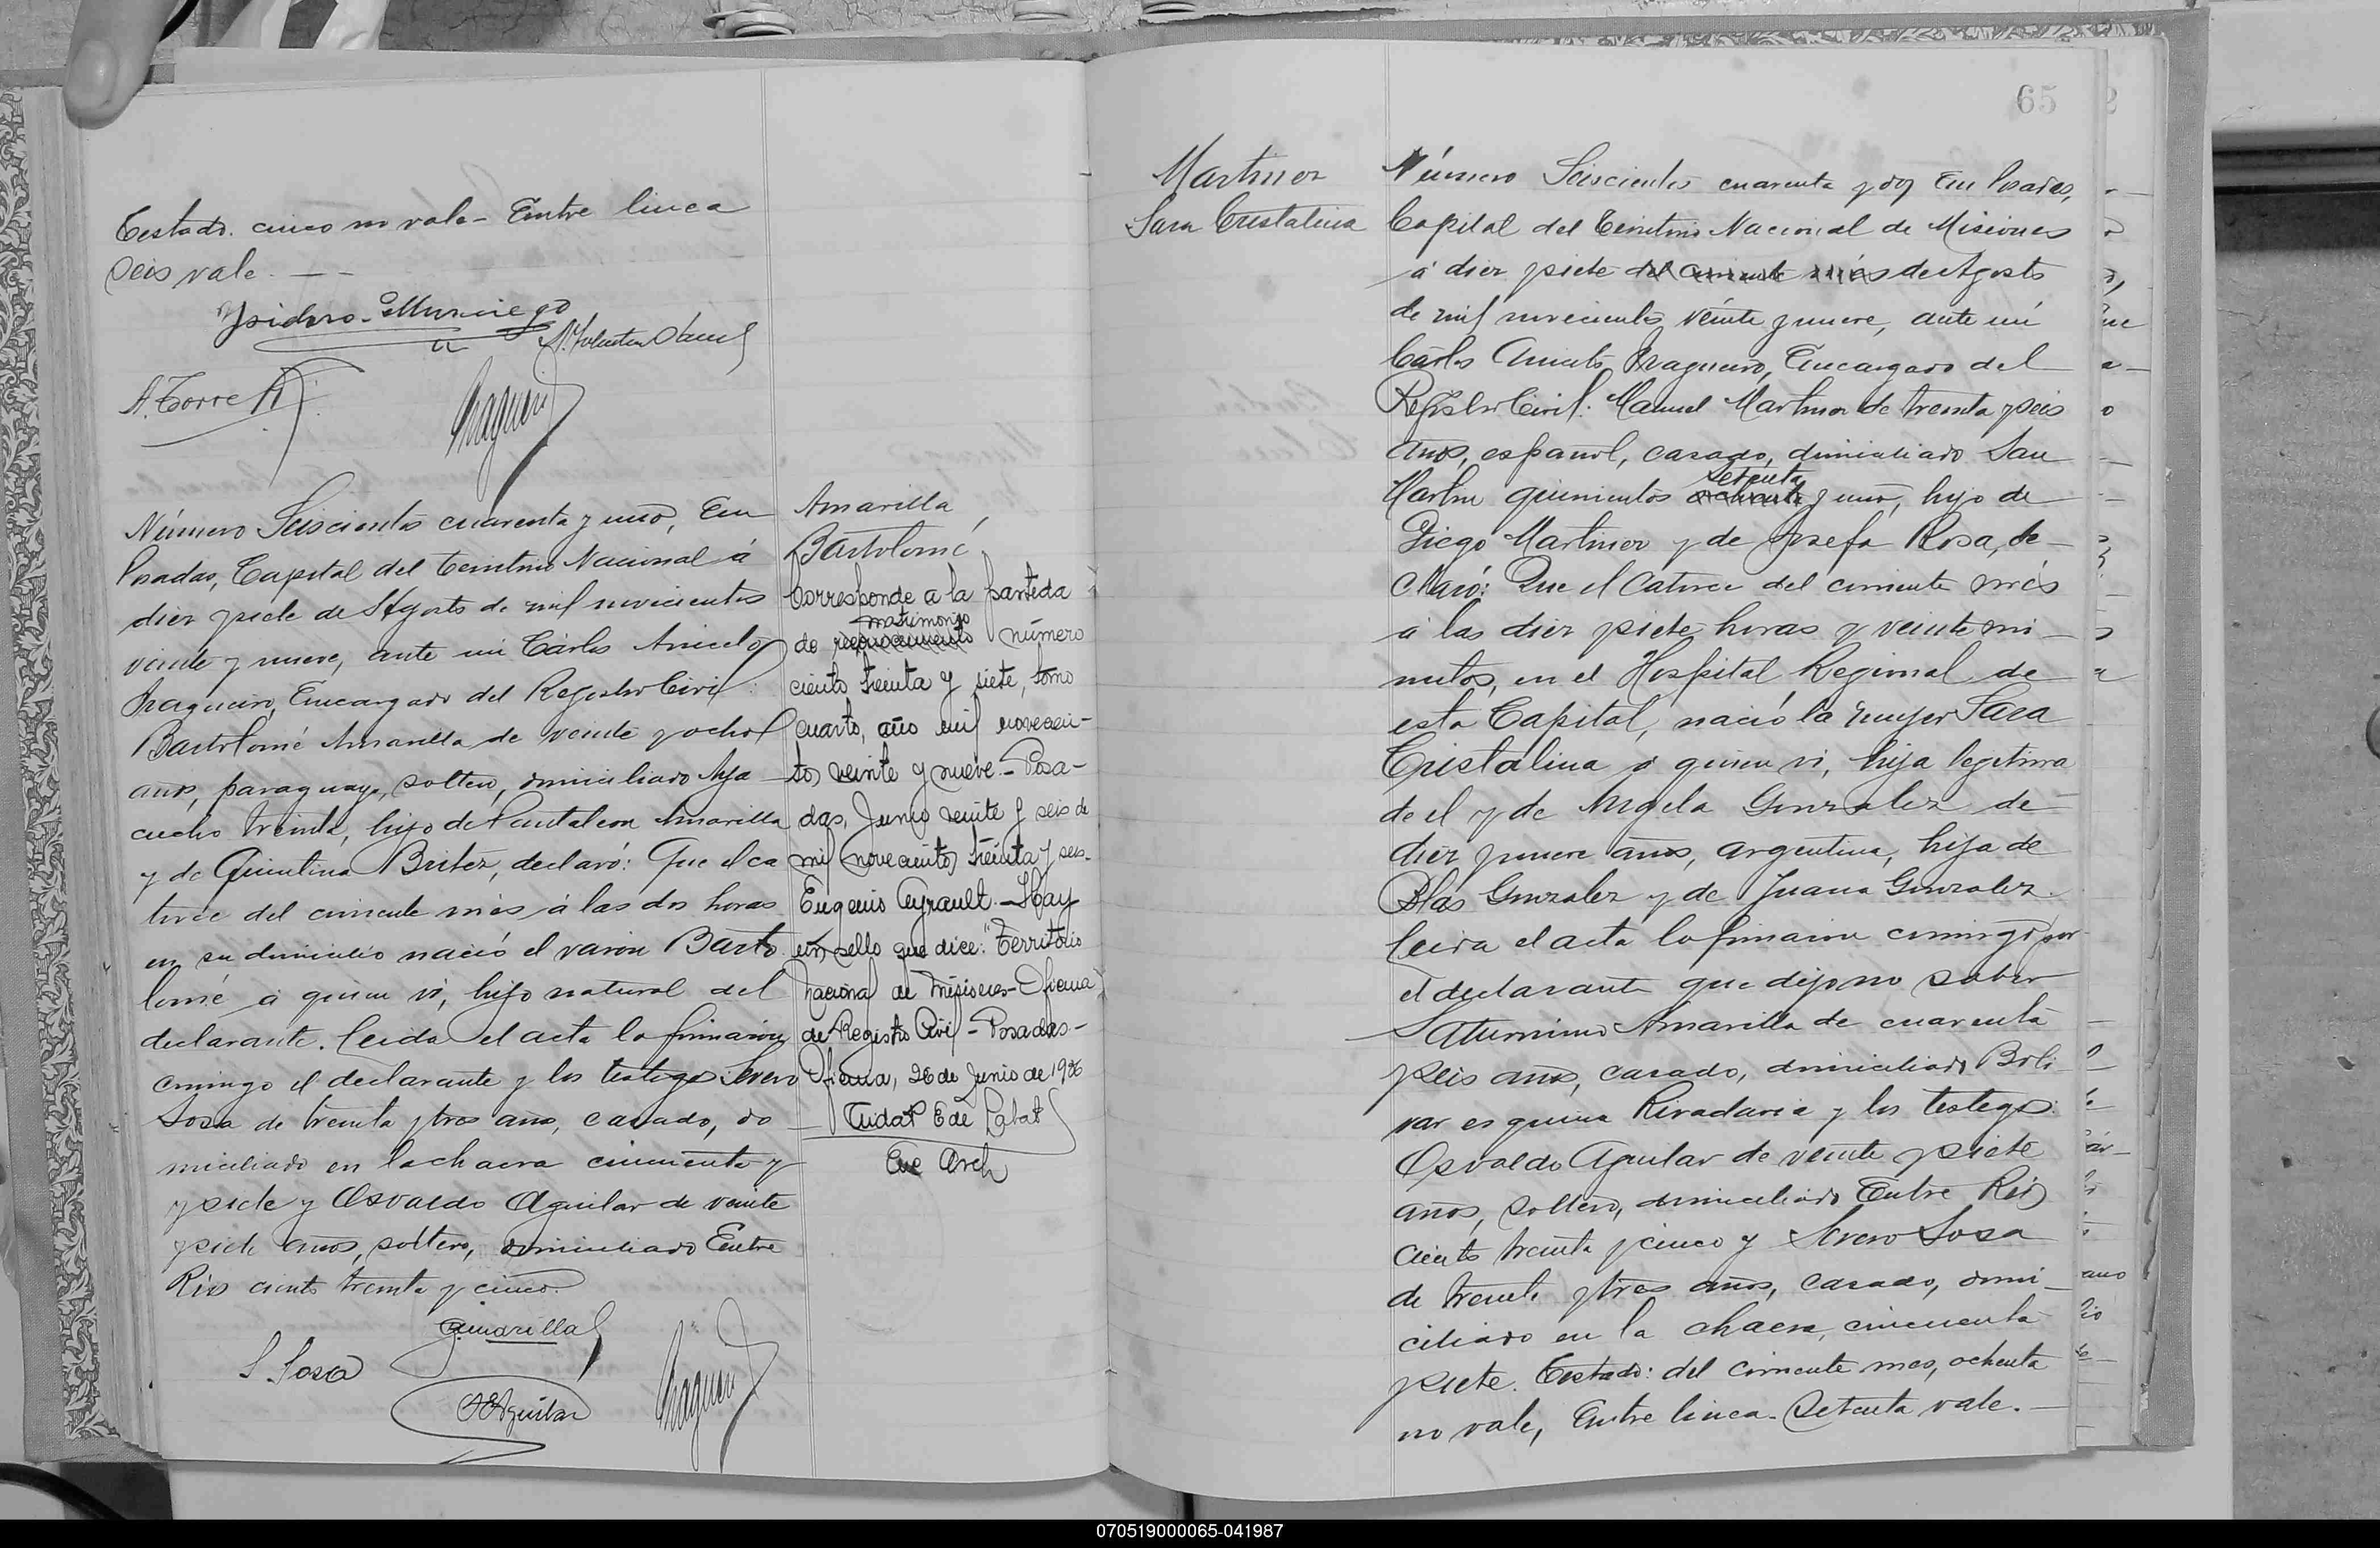 Testado. cinco no vale - Entre linea
seis vale. —
Ysidoro Murciego
A. Torre A
Número Seiscientos cuarenta y uno, En
Posadas, Capital del Territorio Nacional á
diez y siete de Agosto de mil novecientos
veinte y nueve, ante mi Cárlos Aniceto
Fragueiro, Encargado del Registro Civil:
Bartolomé Amarilla de veinte y ocho
años, paraguayo, soltero, domiciliado Aya
cucho treinta, hijo de Pantaleon Amarilla
y de Quintina Britez, declaró: Que el ca
torce del corriente més á las dos horas
en su domicilio nació el varon Barto
lomé á quien vi, hijo natural del
declarante. Leida el acta la firmaron
conmigo el declarante y los testigos: Severo
Sosa de treinta y tres años, casado, do
miciliado en la chacra cincuenta y
y siete y Osvaldo Aguilar de veinte
y siete años, soltero, domiciliado Entre
Rios ciento treinta y cinco.
Amarilla
S Sosa
O Aguilar
Amarilla,
Bartolomé,
Corresponde a la partida
matrimonio
de reconocimiento número
ciento treinta y siete, tomo
cuarto, año mil novecien-
tos veinte y nueve. - Posa-
das, Junio veinte y seis de
mil novecientos treinta y seis.
Eugenio Ayrault. - Hay
un sello que dice: "Territorio
Nacional de Misiones - Oficina
de Registro Civil - Posadas -
Oficina, 26 de Junio de 1936
Enc Arch
65
Martinez
Sara Cristalina
Número Seiscientos cuarenta y dos En Posadas,
Capital del Territorio Nacional de Misiones
á diez y siete del corriente més de Agosto
de mil novecientos veinte y nueve, ante mi
Cárlos Aniceto Fragueiro, Encargado del
Registro Civil: Manuel Martinez de treinta y seis
años, español, casado, domiciliado San
setenta
Martin quinientos ochenta y uno, hijo de
Diego Martinez y de Josefa Rosa, de-
claró: Que el catorce del corriente més
á las diez y siete horas y veinte mi-
nutos, en el Hospital Regional de
esta Capital, nació la mujer Sara
Cristalina á quien vi, hija legitima
de el y de Angela Gonzalez de
diez y nueve años, argentina, hija de
Blas Gonzalez y de Juana Gonzalez.
Leida el acta la firmaron conmigo por
el declarante que dijo no saber
Saturnino Amarilla de cuarenta
y seis años, casado, domiciliado Boli
var esquina Rivadavia y los testigos:
Osvaldo Aguilar de veinte y siete
años, soltero, domiciliado Entre Rios
ciento treinta y cinco y Severo Sosa
de treinta y tres años, casado, domi-
ciliado en la chacra cincuenta
y siete. Testado: del corriente mes, ochenta
no vale, Entre linea - Setenta vale. —
070519000065-041987